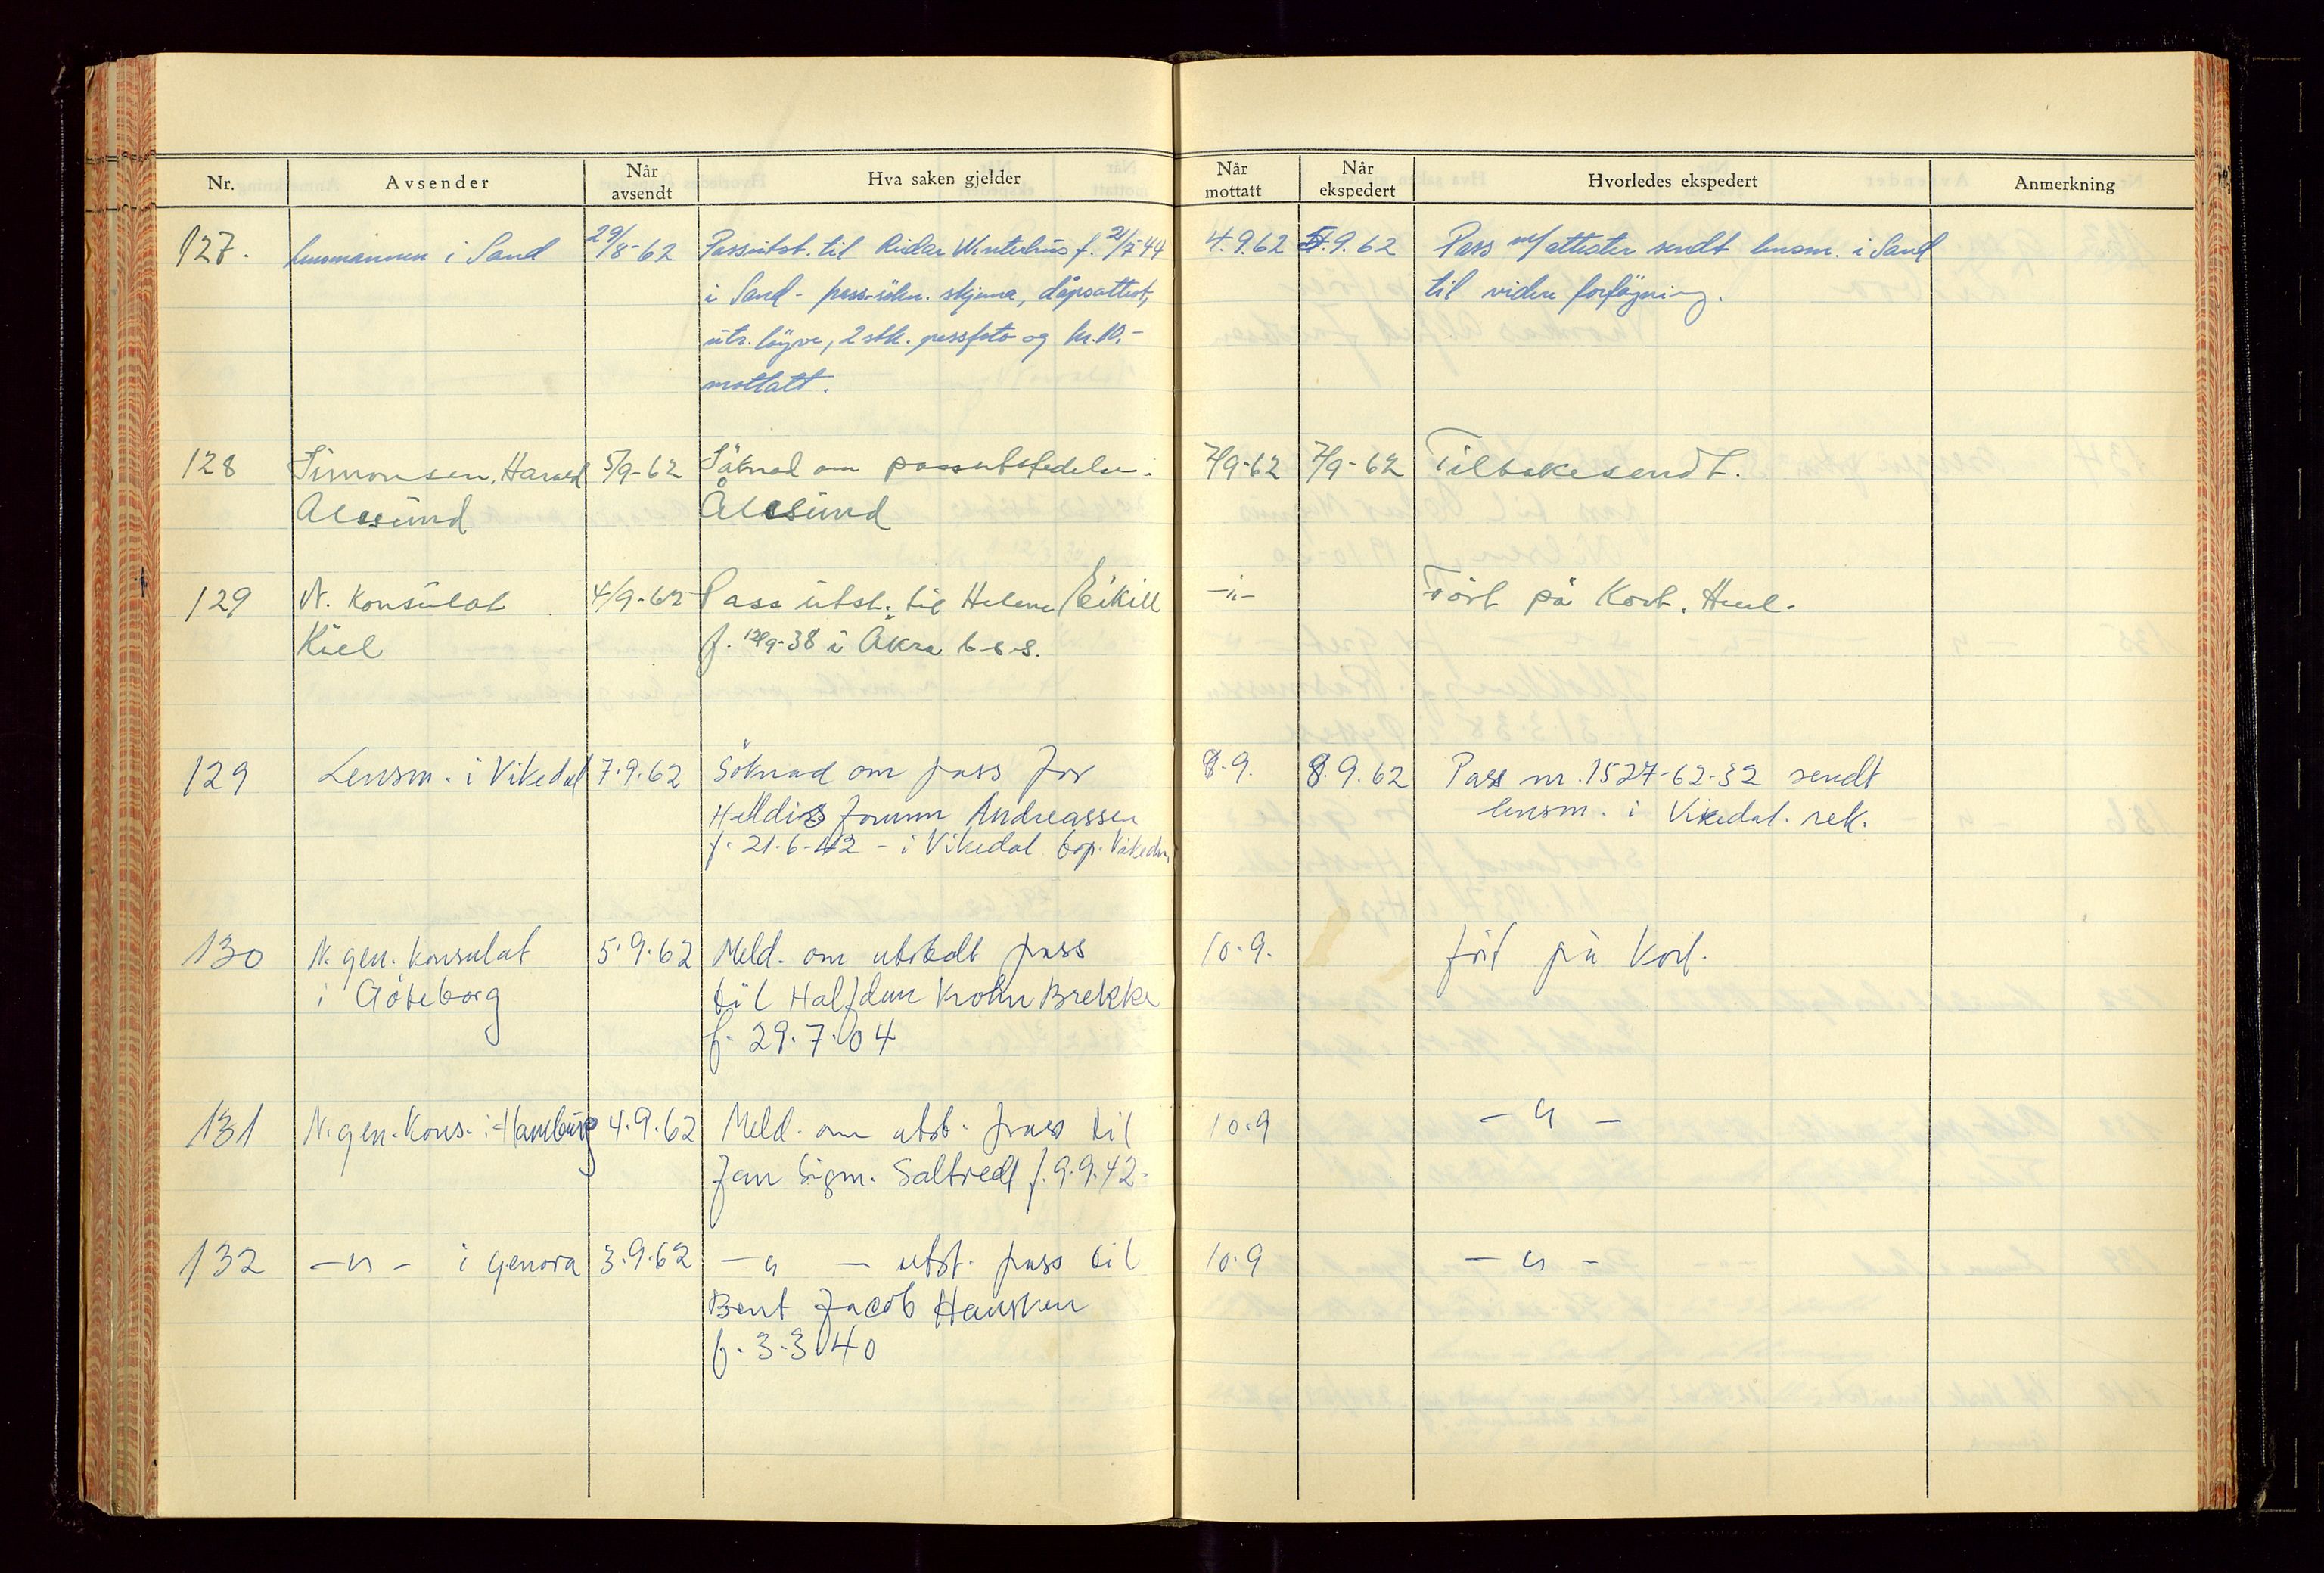 Nr. Avsender Når avsendt Hva saken gjelder Når mottatt Når ekspedert Hvorledes ekspedert Anmerkning
127. Lensmannen i Sand 29/8-62 Passutst. til Reidar Vinterhus f. 21/7-44 4.9.62 5.9.62 Pass m/attester sendt lensm. i Sand
i Sand - pass-sökn. skjema, dåpsattest, til videre forföyning.
utr. löyve, 2 stk. passfoto og kr. 10,-
mottatt.
128 Simonsen, Harald 5/9-62 Söknad om passutstedelse: 7/9-62 7/9-62 Tilbakesendt.
Alesund Ålesund
129 N. Konsulat 4/9-62 Pass utst. til Helene Eikill -"- Fört på Kort. Henl.
Kiel f. 12/9-38 i Åkra b-s-s.
129 Lensm. i Vikedal 7.9.62 Söknad om pass for 8.9. 8.9.62 Pass nr. 1527-62-32 sendt
Andreassen lensm. i Vikedal. rek.
f. 21-6-42 - i Vikedal bop. Vikedal
130 N. gen. konsulat 5.9.62 Meld. om utstedt pass 10.9. fört på kort.
i Göteborg til Halfdan Krohn Brekke
f. 29.7.04
131 N. gen. Kons. i Hamburg 4.9.62 Meld. om utst. pass til 10.9 - " -
Jan Sigm. Saltvedt f. 9.9.42.
132 - " - i Genova 3.9.62 - " - utst. pass til 10.9 - " -
Bent Jacob Hausken
f. 3-3-40